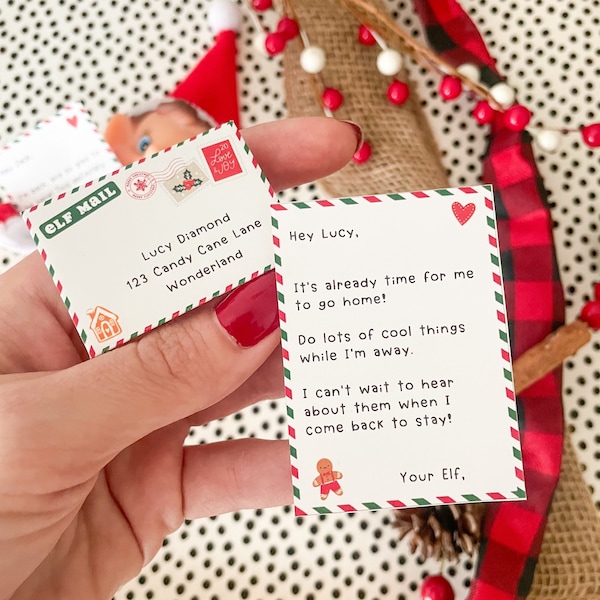 ELF MAIL
20
Love
Lucy Diamond
123 Candy Cane Lane
Wonderland
Hey Lucy,
It's already time for me
to go home!
Do lots of cool things
while I'm away.
I can't wait to hear
about them when I
come back to stay!
Your Elf,